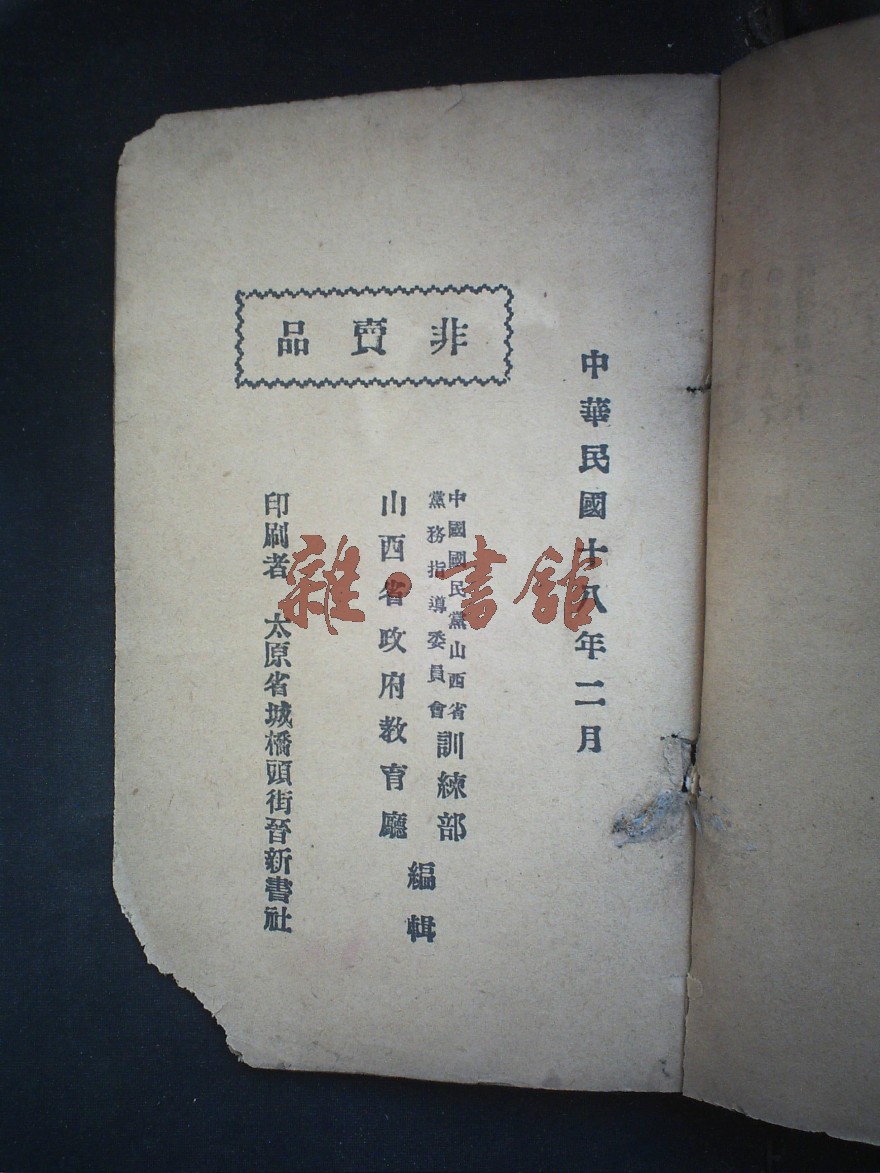 中華民國十八年二月
非賣品
中國國民黨山西省
黨務指導委員會
訓練部
山西省政府教育廳
編輯
印刷者 太原省城橋頭街晉新書社
雜·書館